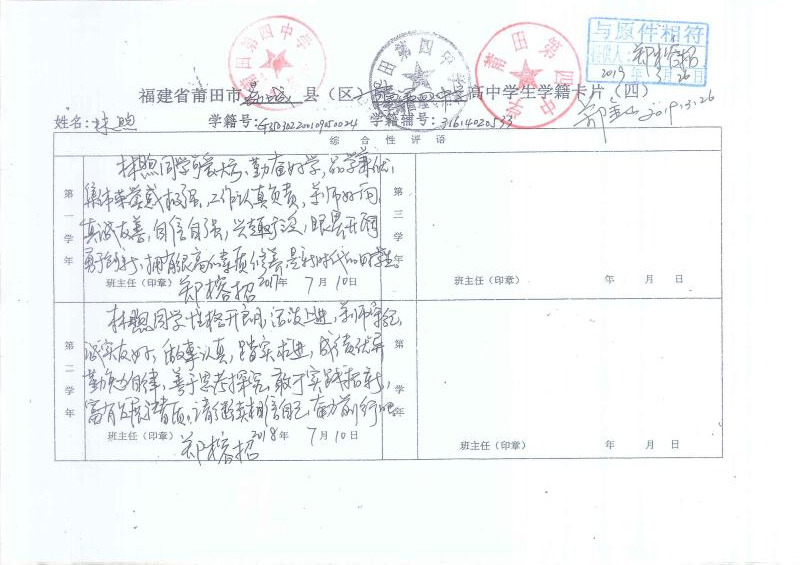 莆田第四中学
莆田第四中学
莆田第四中学
与原件相符
2019年3月26日
福建省莆田市荔城县(区)莆田第四中学高中学生学籍卡片(四)
2019.3.26
姓名:林煦 学籍号:G350302200109050024 学籍辅号:31614020533
综合性评语
第一学年
林煦同学可爱大方、勤奋好学,品学兼优,
集体荣誉感极强,工作认真负责,尊师好问,
真诚友善,自信自强,兴趣广泛,眼界开阔
勇于创新,拥有很高的素质修养是新时代的好学生。
班主任(印章) 郑榕招 2017年 7月10日
第二学年
林煦同学性格开朗,活泼上进,尊师守纪,
诚实友好,做事认真,踏实求进,成绩优异
勤勉自律,善于思考探究,敢于实践拓新,
富有发展潜质,请继续相信自己,奋力前行吧
班主任(印章) 郑榕招 2018年 7月10日
第三学年
班主任(印章) 年 月 日
第 学年
班主任(印章) 年 月 日